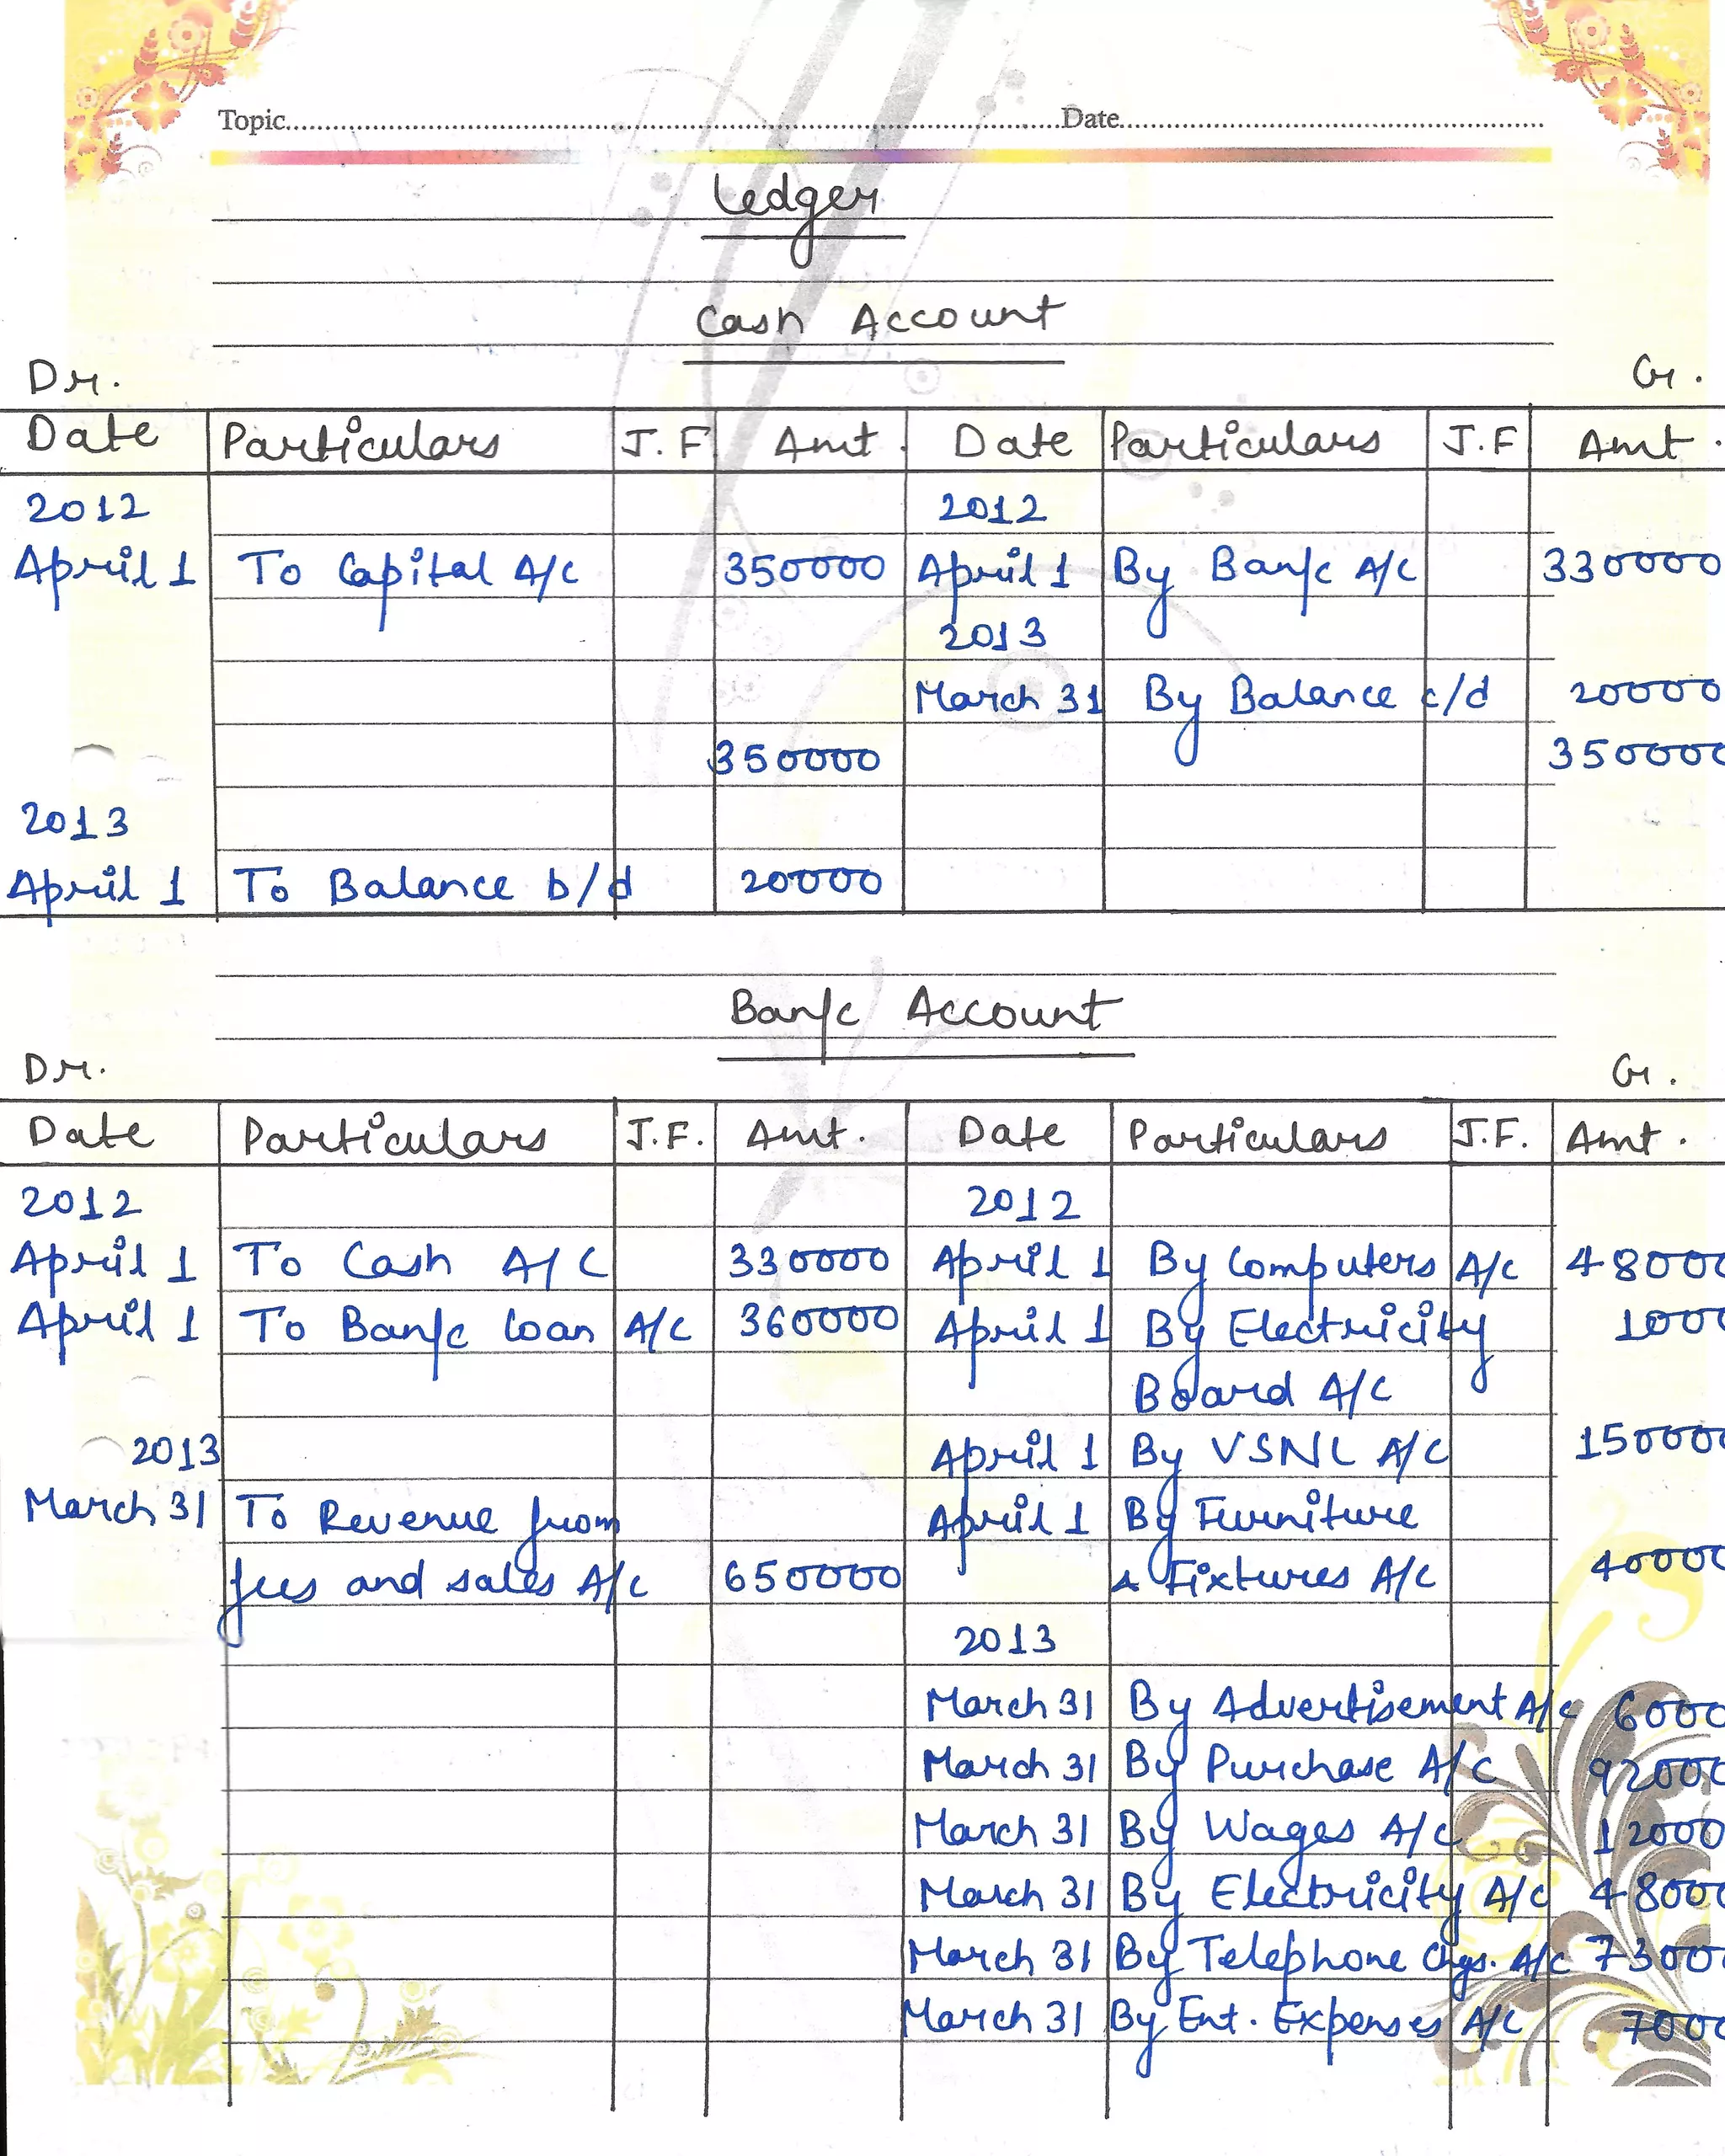 Topic Date
Ledger
Cash Account
Dr. Cr.
Date Particulars J.F Amt. Date Particulars J.F Amt.
2012 2012
April 1 To Capital A/c 350000 April 1 By Bank A/c 330000
2013
March 31 By Balance c/d 20000
350000 350000
2013
April 1 To Balance b/d 20000
Bank Account
Dr. Cr.
Date Particulars J.F. Amt. Date Particulars J.F. Amt.
2012 2012
April 1 To Cash A/C 330000 April 1 By Computers A/c 48000
April 1 To Bank loan A/c 360000 April 1 By Electricity 1000
Board A/c
2013 April 1 By VSNL A/c 150000
March 31 To Revenue from April 1 By Furniture
fees and sales A/c 650000 & Fixtures A/c 40000
2013
March 31 By Advertisement A/c 6000
March 31 By Purchase A/c 92000
March 31 By Wages A/c 12000
March 31 By Electricity A/c 48000
March 31 By Telephone Chgs. A/c 73000
March 31 By Ent. Expenses A/c 7000